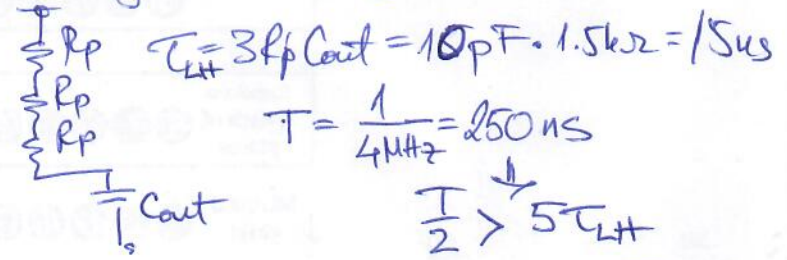 Rp τLH = 3Rp Cout = 10pF · 1.5kΩ = 15ns
Rp
Rp T = 1/4MHz = 250ns
Cout T/2 > 5τLH